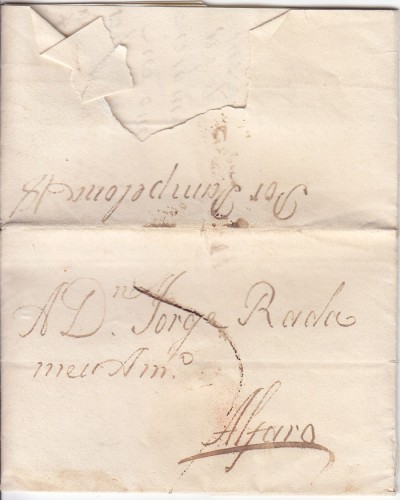 Por Pampelona
A Dn. Jorge Rada
meu Amo.
Alfaro